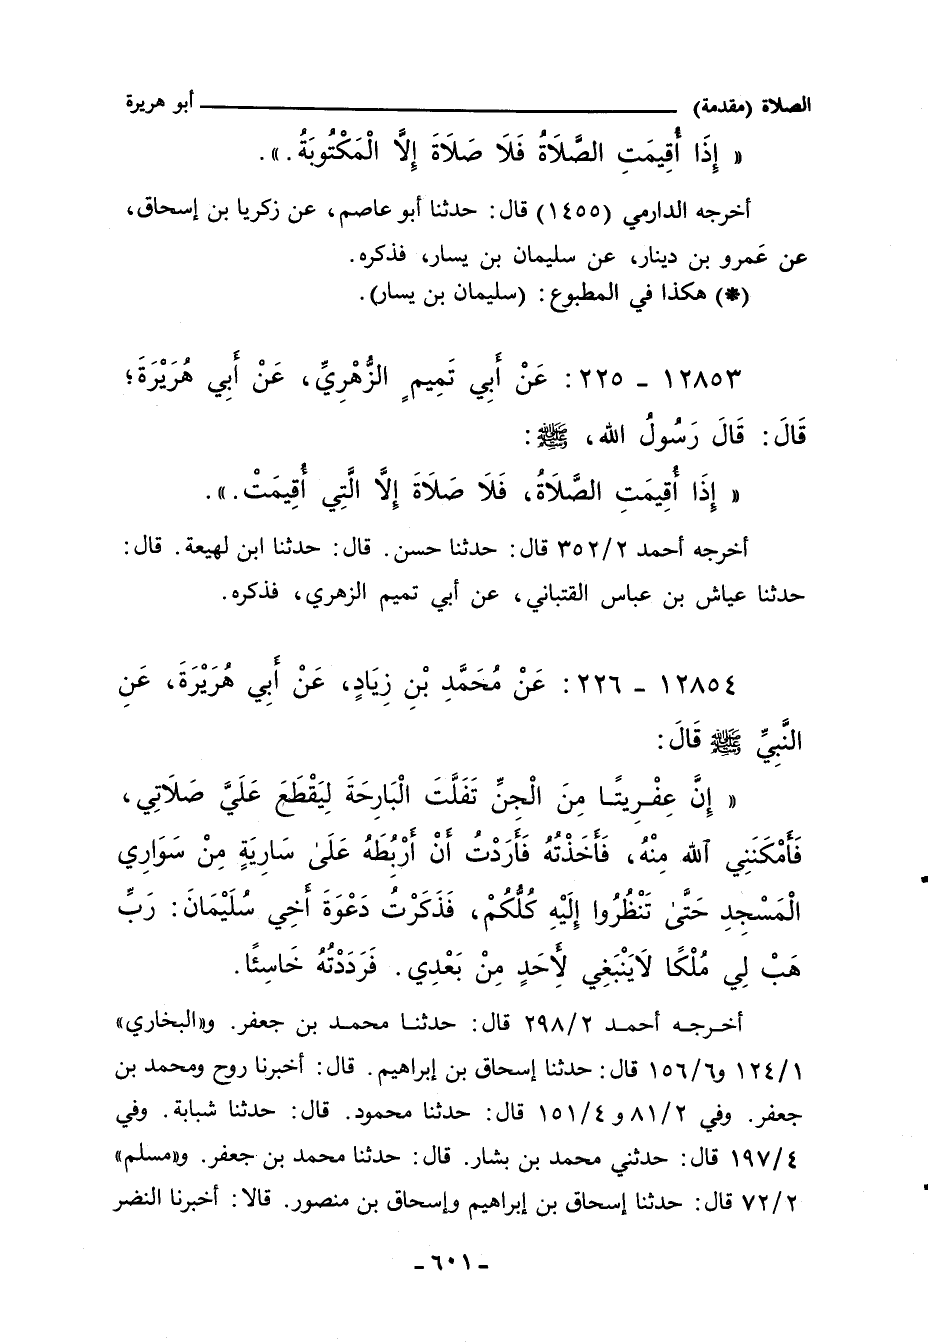 الصلاة (مقدمة) ــــــــــ أبو هريرة
« إِذَا أُقِيمَتِ الصَّلَاةُ فَلَا صَلَاةَ إِلَّا الْمَكْتُوبَةُ . » .
أخرجه الدارمي (١٤٥٥) قال : حدثنا أبو عاصم ، عن زكريا بن إسحاق ،
عن عَمرو بن دينار، عن سليمان بن يسار، فذكره .
(*) هكذا في المطبوع : (سليمان بن يسار) .
١٢٨٥٣ - ٢٢٥ : عَنْ أَبِي تَمِيمٍ الزُّهْرِيِّ ، عَنْ أَبِي هُرَيْرَةَ ؛
قَالَ : قَالَ رَسُولُ الله ، ﷺ :
« إِذَا أُقِيمَتِ الصَّلَاةُ ، فَلَا صَلَاةَ إِلَّا الَّتِي أُقِيمَتْ . » .
أخرجه أحمد ٣٥٢/٢ قال : حدثنا حسن . قال : حدثنا ابن لهيعة . قال :
حدثنا عياش بن عباس القتباني ، عن أبي تميم الزهري ، فذكره .
١٢٨٥٤ - ٢٢٦ : عَنْ مُحَمَّدِ بْنِ زِيَادٍ، عَنْ أَبِي هُرَيْرَةَ ، عَنِ
النَّبِيِّ ﷺ قَالَ :
« إِنَّ عِفْرِيتًا مِنَ الْجِنِّ تَفَلَّتَ الْبَارِحَةَ لِيَقْطَعَ عَلَيَّ صَلَاتِي ،
فَأَمْكَنَنِي ٱلله مِنْهُ ، فَأَخَذْتُهُ فَأَرَدْتُ أَنْ أَرْبُطَهُ عَلَىٰ سَارِيَةٍ مِنْ سَوَارِي
الْمَسْجِدِ حَتَّىٰ تَنْظُرُوا إِلَيْهِ كُلُّكُمْ ، فَذَكَرْتُ دَعْوَةَ أَخِي سُلَيْمَانَ : رَبِّ
هَبْ لِي مُلْكًا لَايَنْبَغِي لِأَحَدٍ مِنْ بَعْدِي . فَرَدَدْتُهُ خَاسِئًا .
أخرجه أحمد ٢٩٨/٢ قال : حدثنا محمد بن جعفر . و«البخاري»
١٢٤/١ و١٥٦/٦ قال : حدثنا إسحاق بن إبراهيم . قال : أخبرنا روح ومحمد بن
جعفر . وفي ٨١/٢ و ١٥١/٤ قال : حدثنا محمود . قال : حدثنا شبابة . وفي
١٩٧/٤ قال : حدثني محمد بن بشار . قال : حدثنا محمد بن جعفر . و«مسلم»
٧٢/٢ قال : حدثنا إسحاق بن إبراهيم وإسحاق بن منصور . قالا : أخبرنا النضر
- ٦٠١ -